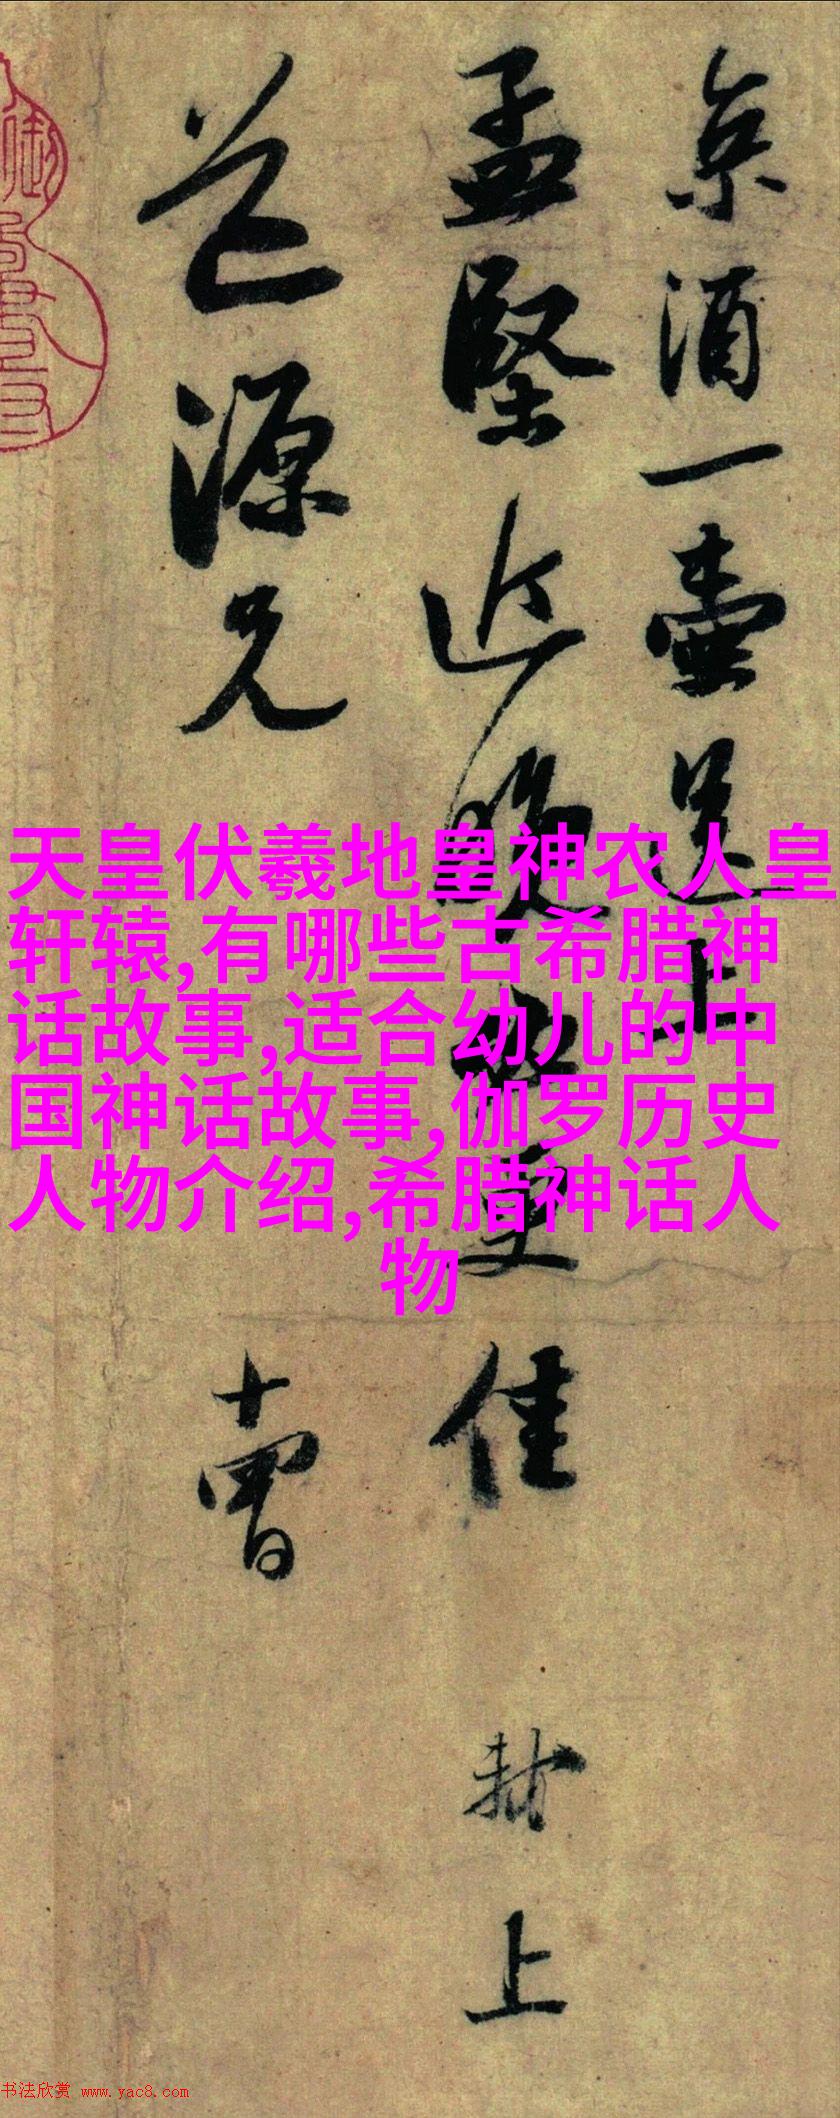 京酒一壺送上
孟堅近晚必更佳 軾上
道源兄 十四日
天皇伏羲地皇神农人皇
轩辕,有哪些古希腊神
话故事,适合幼儿的中
国神话故事,伽罗历史
人物介绍,希腊神话人
物
书法欣赏 www.yac8.com